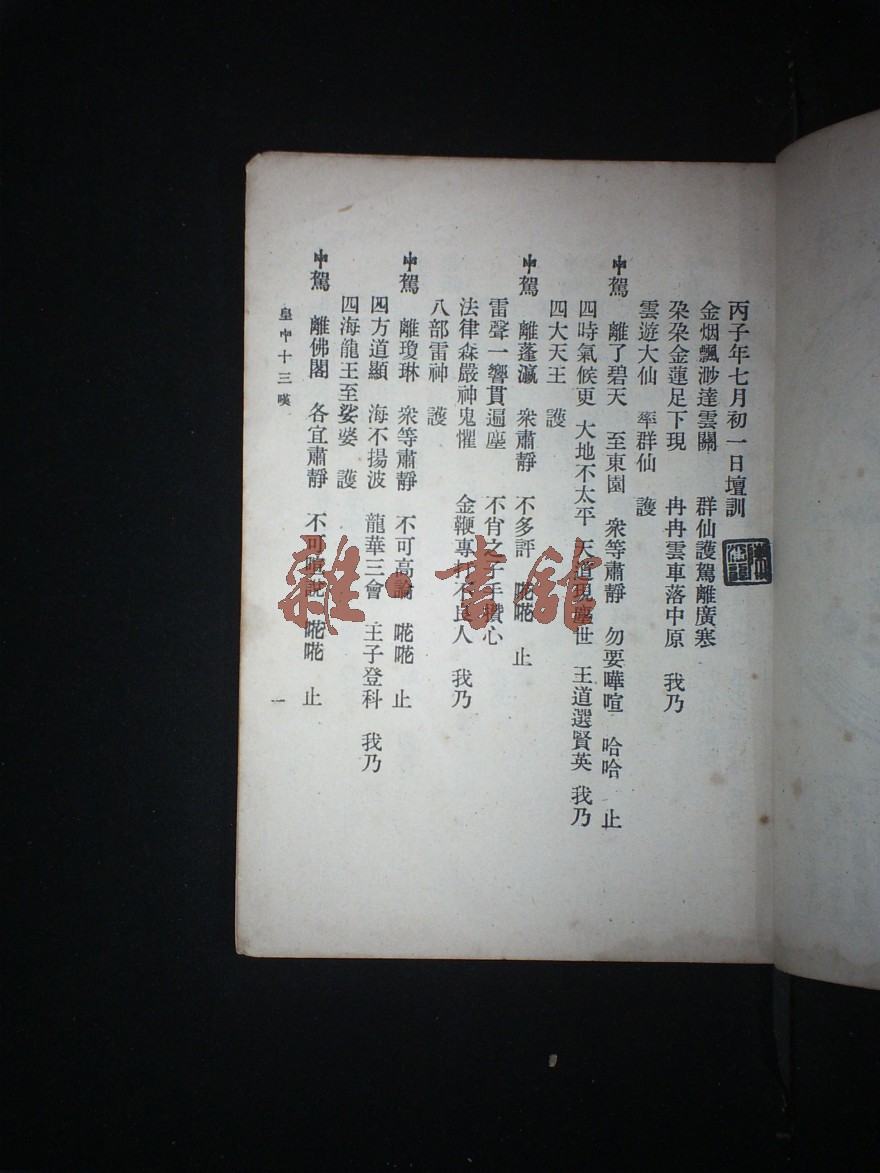 丙子年七月初一日壇訓
金烟飄渺達雲關　群仙護駕離廣寒
朶朶金蓮足下現　冉冉雲車落中原　我乃
雲遊大仙　率群仙　護
駕　離了碧天　至東園　衆等肅靜　勿要嘩喧　哈哈　止
四時氣候更　大地不太平　天道現塵世　王道選賢英　我乃
四大天王　護
駕　離蓬瀛　衆肅靜　不多評　止
雷聲一響貫遍座　不肖之子手攢心
法律森嚴神鬼懼　金鞭專打不良人　我乃
八部雷神　護
駕　離瓊琳　衆等肅靜　不可高論　止
四方道顯　海不揚波　龍華三會　王子登科　我乃
四海龍王至娑婆　護
駕　離佛閣　各宜肅靜　不可喧說　止
皇　十三嘆
一
雜·書館